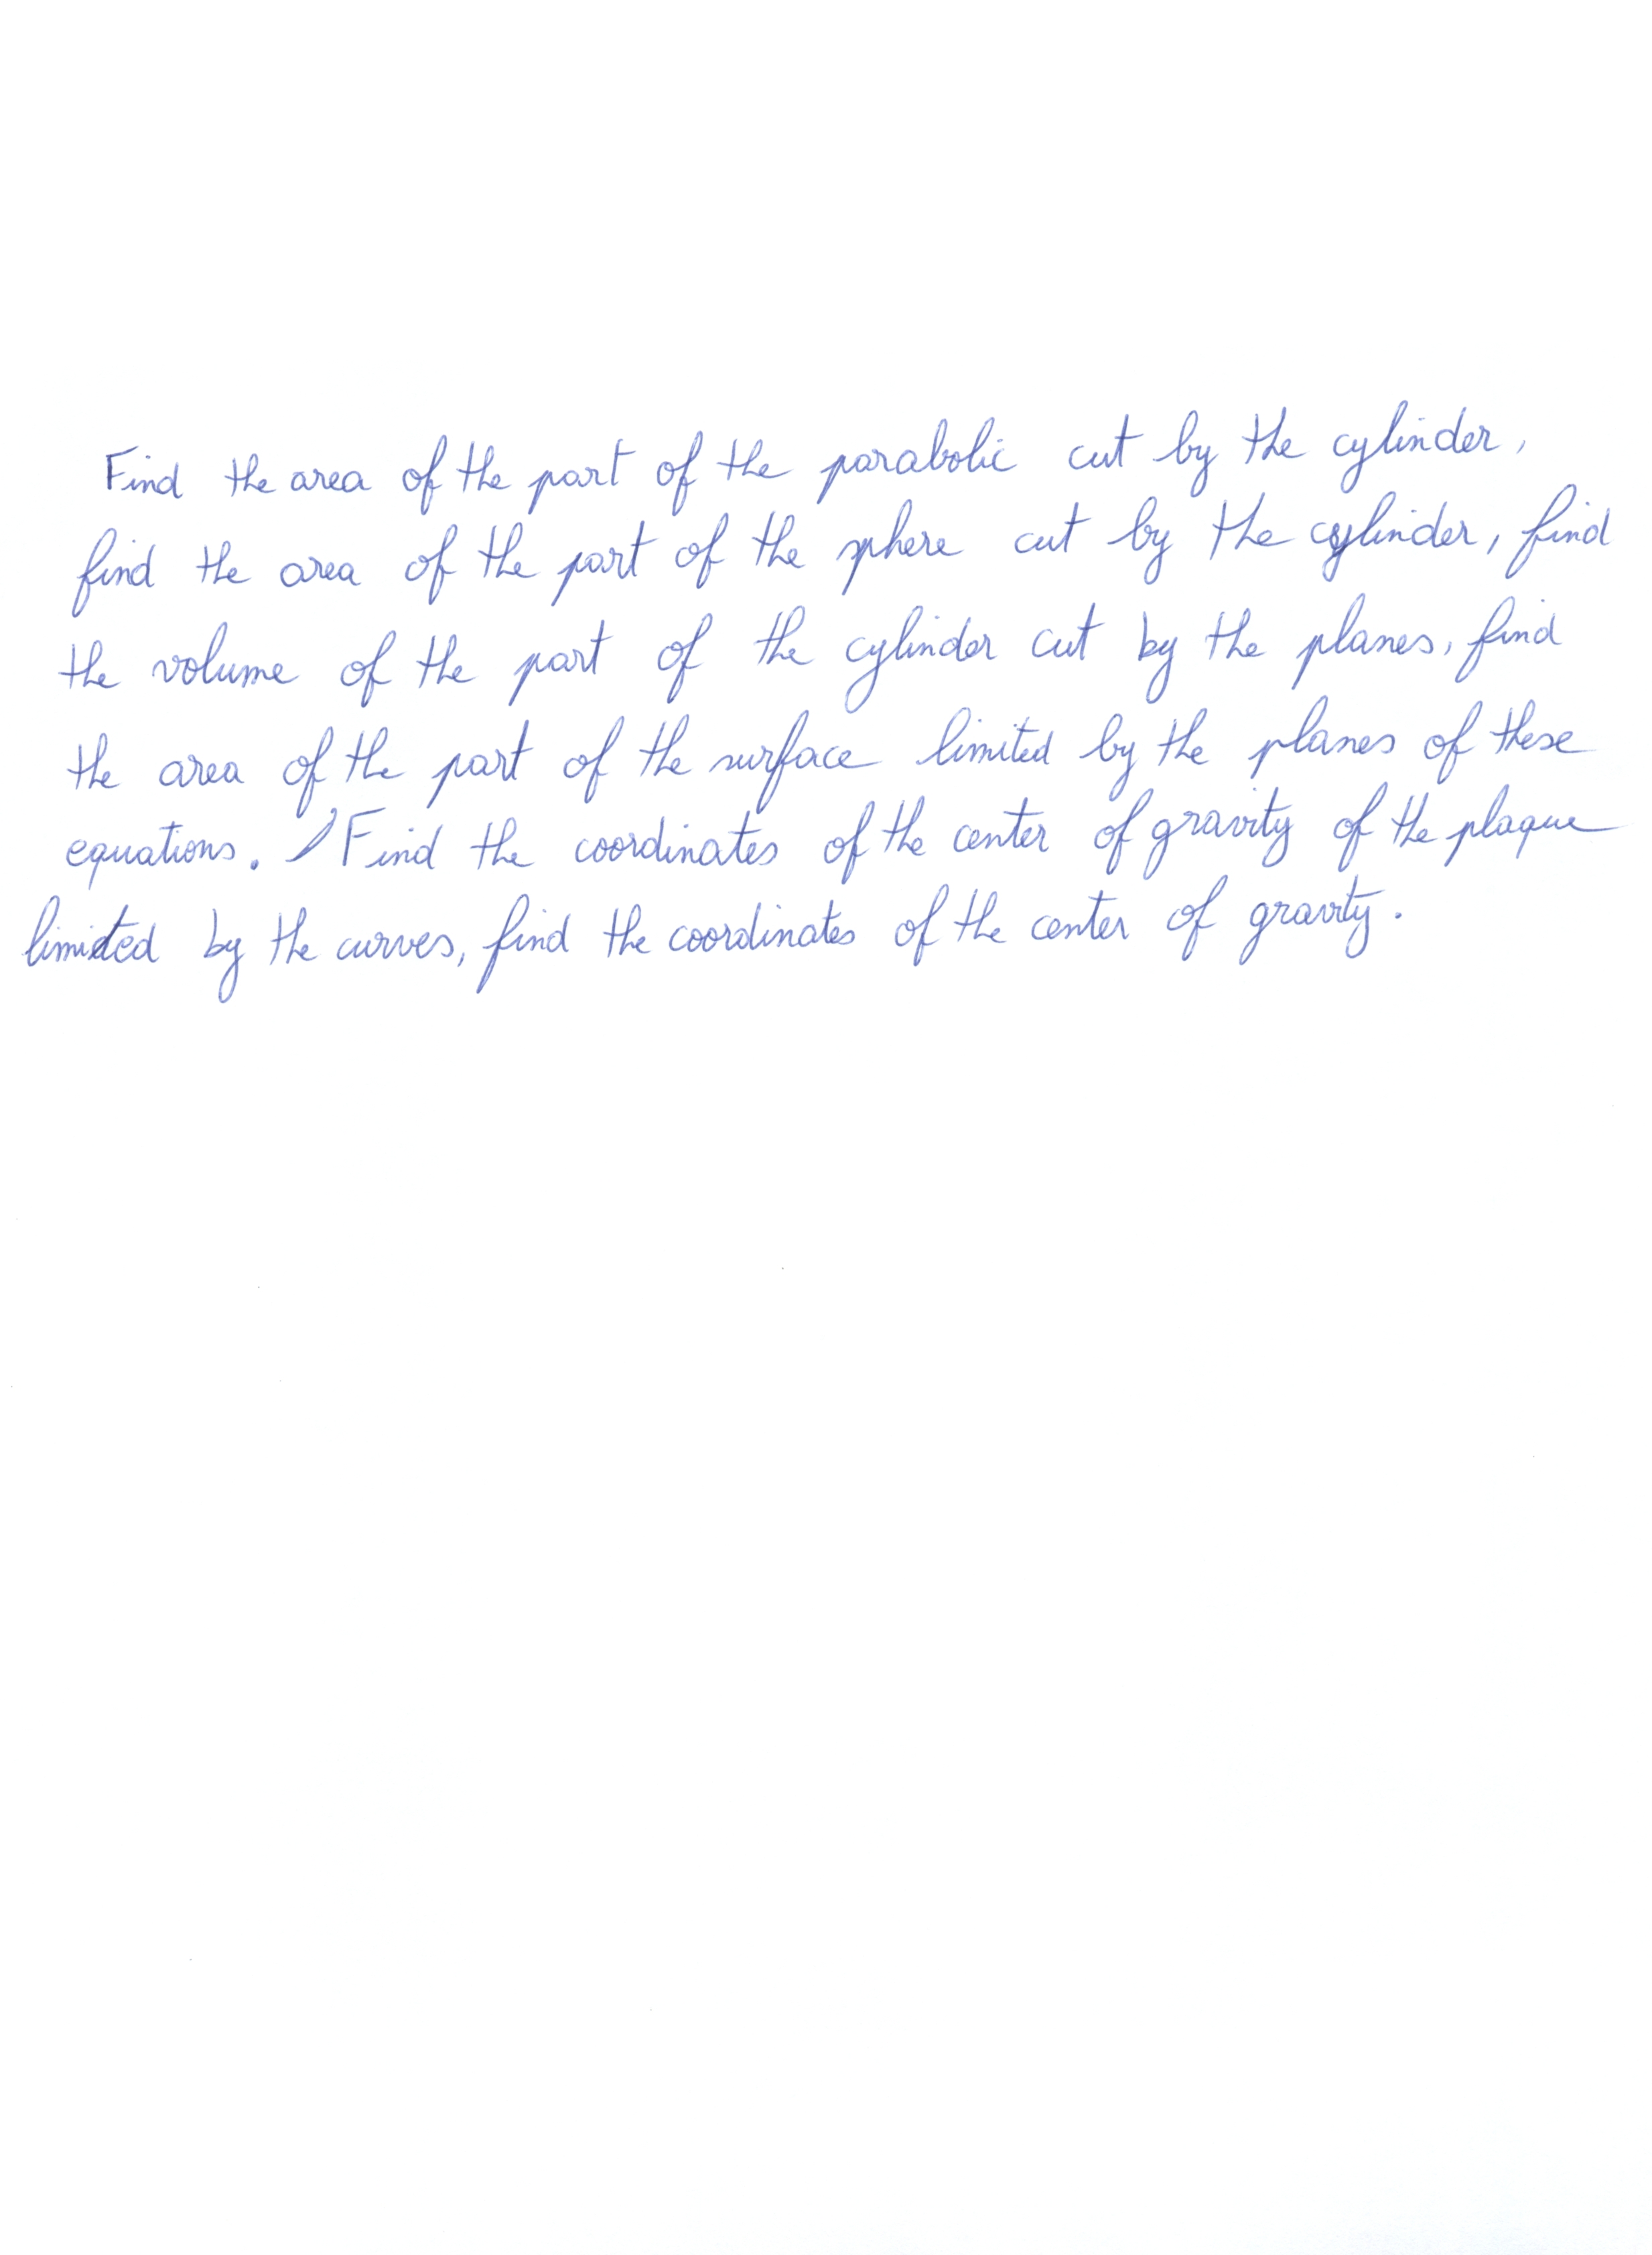 Find the area of the part of the parabolic cut by the cylinder,
find the area of the part of the sphere cut by the cylinder, find
the volume of the part of the cylinder cut by the planes, find
the area of the part of the surface limited by the planes of these
equations. Find the coordinates of the center of gravity of the plaque
limited by the curves, find the coordinates of the center of gravity.